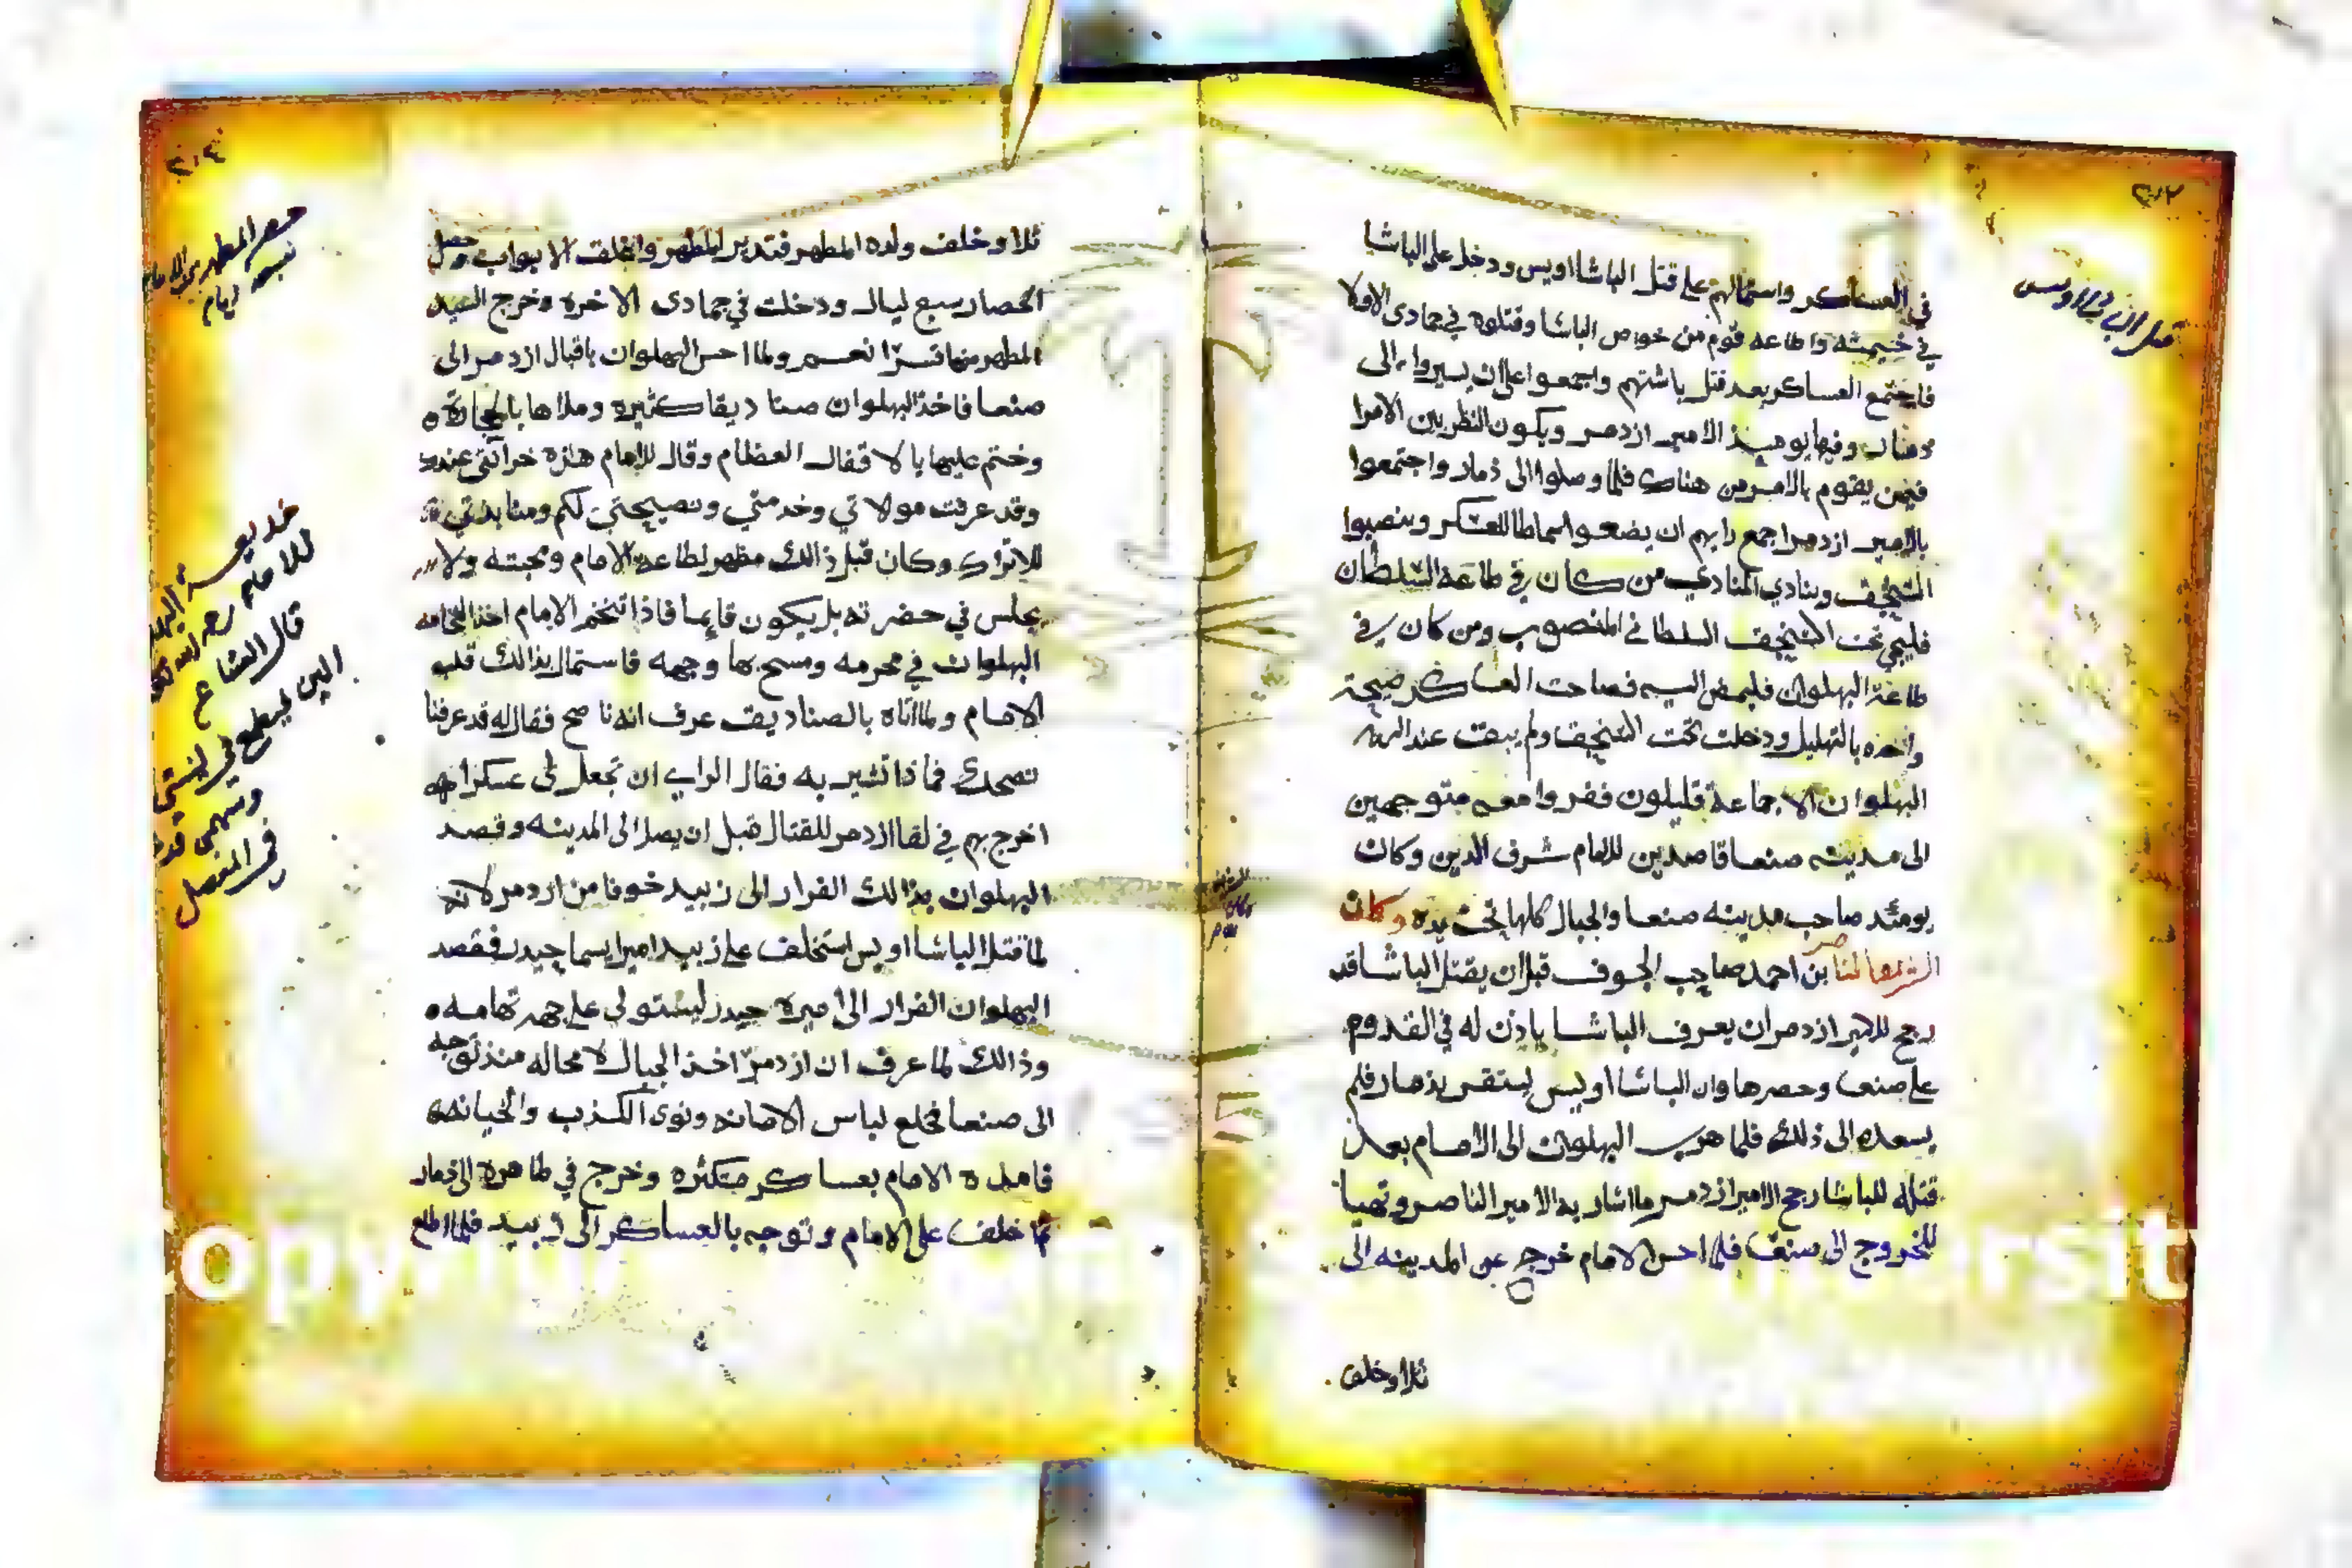 ٣٠٢
قتل الباشا اويس
في العساكر واستمالهم على قتل الباشا اويس ودخل على الباشا
في خيمته واطاعه قوم من خواص الباشا وقتلوه في جمادى الاولا
فاجتمع العساكر بعد قتل باشتهم واجمعوا على ان يسيروا الى
ذمار وفيها يوميذ الامير ازدمر ويكون النظر بين الامرا
فيمن يقوم بالامر من هناك فلما وصلوا الى ذمار واجتمعوا
بالامير ازدمر اجمع رايهم ان يضعوا سماطا للعسكر وينصبوا
السنجق وينادي المنادي من كان في طاعة السلطان
فليجي تحت السنجق السلطاني المنصوب ومن كان في
طاعة البهلوان فليمض اليه فصاحت العساكر صيحة
واحده بالتهليل ودخلت تحت السنجق ولم يبق عند
البهلوان الا جماعة قليلون ففروا معه متوجهين
الى مدينه صنعا قاصدين للامام شرف الدين وكان
يومئذ صاحب مدينه صنعا والجبال كلها تحت يده وكان
بن احمد صاحب الجوف قبل ان يقتل الباشا قد
رجح للامير ازدمر ان يعرف الباشا ياذن له في القدوم
على صنعا وحصرها وان الباشا اويس يستقر بذمار فلم
يسعده الى ذلك فلما هرب البهلوان الى الامام بعد
قتله للباشا رجح الامير ازدمر ما اشار به الامير الناصر وتهيا
للخروج الى صنعا فلما احس الامام خرج عن المدينه الى
ثلا وخلف
ثلا وخلف ولده المطهر فتدير المطهر واغلق الابواب وحصل
الحصار سبع ليال ودخلت في جمادى الاخره وخرج السيد
المطهر منها قسرا نعم ولما احس البهلوان باقبال ازدمر الى
صنعا فاخذ البهلوان صناديقا كثيره وملاها بالحجاره
وختم عليها بالاقفال العظام وقال للامام هذه خزائني عندك
وقد عرفت مولاتي وخدمتي ونصيحتي لكم ومنابذتي
للاتراك وكان قبل ذالك مظهر لطاعه الامام ومحبته ولا
يجلس في حضرته بل يكون قايما فاذا تنخم الامام اخذ النخامه
البهلوان في محرمه ومسح بها وجهه فاستمال بذالك قلب
الامام ولما اتاه بالصناديق عرف انه ناصح فقال له قد عرفنا
نصحك فما ذا تشير به فقال الراي ان تجعل لي عسكرا
اخرج بهم في لقا ازدمر للقتال قبل ان يصل الى المدينه وقصد
البهلوان بذالك الفرار الى زبيد خوفا من ازدمر لانه
لما قتل الباشا اويس استخلف على زبيد اميرا يسما حيدر فقصد
البهلوان الفرار الى اميره حيدر ليستولي على جهة تهامه
وذالك لما عرف ان ازدمر اخذ الجبال لا محاله منذ توجه
الى صنعا فخلع لباس الامانه ونوى الكذب والخيانه
فامده الامام بعساكر متكثره وخرج في ظاهره الى ذمار
ثم خلف على الامام وتوجه بالعساكر الى زبيد فلما اطلع
حصر المطهر
سبعه ايام
خديعه
للامام رحمه الله
قال الشاعر